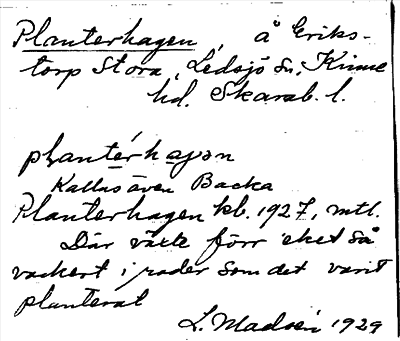 Planterhagen, å Eriks-
torp Stora, Ledsjö sn, Kinne
hd. Skarab. l.
plantérhagən
Kallas även Backa
Planterhagen kb. 1927, mtl.
Där växte förr eket så
vackert i rader som det varit
planterat
L. Madsén 1929